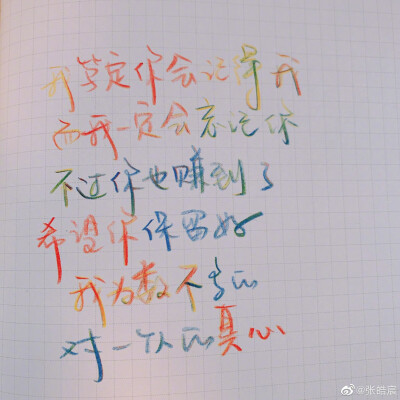 我算定你会记得我
而我一定会忘记你
不过你也赚到了
希望你保留好
我为数不多的
对一个人的真心
@张皓宸